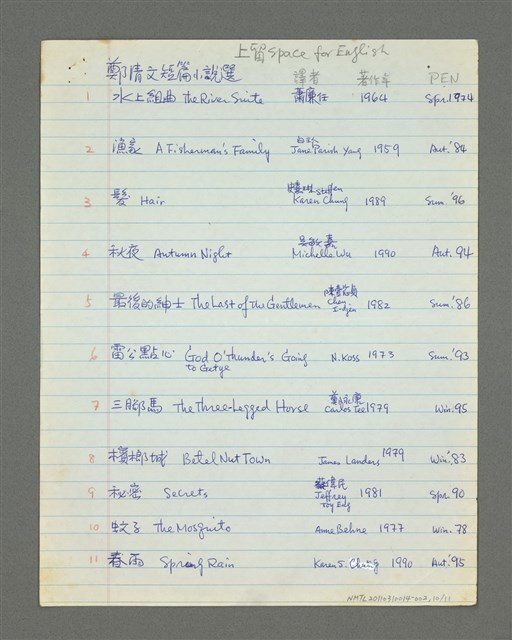 上留 space for English
鄭清文短篇小說選 譯者 著作年 PEN
1 水上組曲 the River Suite 蕭廉任 1964 Spr. 1974
2 漁家 A Fisherman's Family Jane Parish Yang 1959 Aut. '84
3 髮 Hair Steffen
Karen Chung 1989 Sum. '96
4 秋夜 Autumn Night 吳敏嘉
Michelle Wu 1990 Aut. 94
5 最後的紳士 The Last of the Gentlemen 陳懿貞
Chen
I-djen 1982 Sum. '86
6 雷公點心 God O'thunder's Going
to Getye N. Koss 1973 Sum. '93
7 三腳馬 the Three-Legged Horse 鄭永康
Carlos Tee 1979 Win. 95
8 檳榔城 Betel Nut Town James Landers 1979 Win. '83
9 秘密 Secrets 蘇偉民
Jeffrey
Toy Eng 1981 Spr. 90
10 蚊子 the Mosquito Anne Behne 1977 Win. 78
11 春雨 Spring Rain Karen S. Chung 1990 Aut. '95
NMTL20110310014-002, 10/11